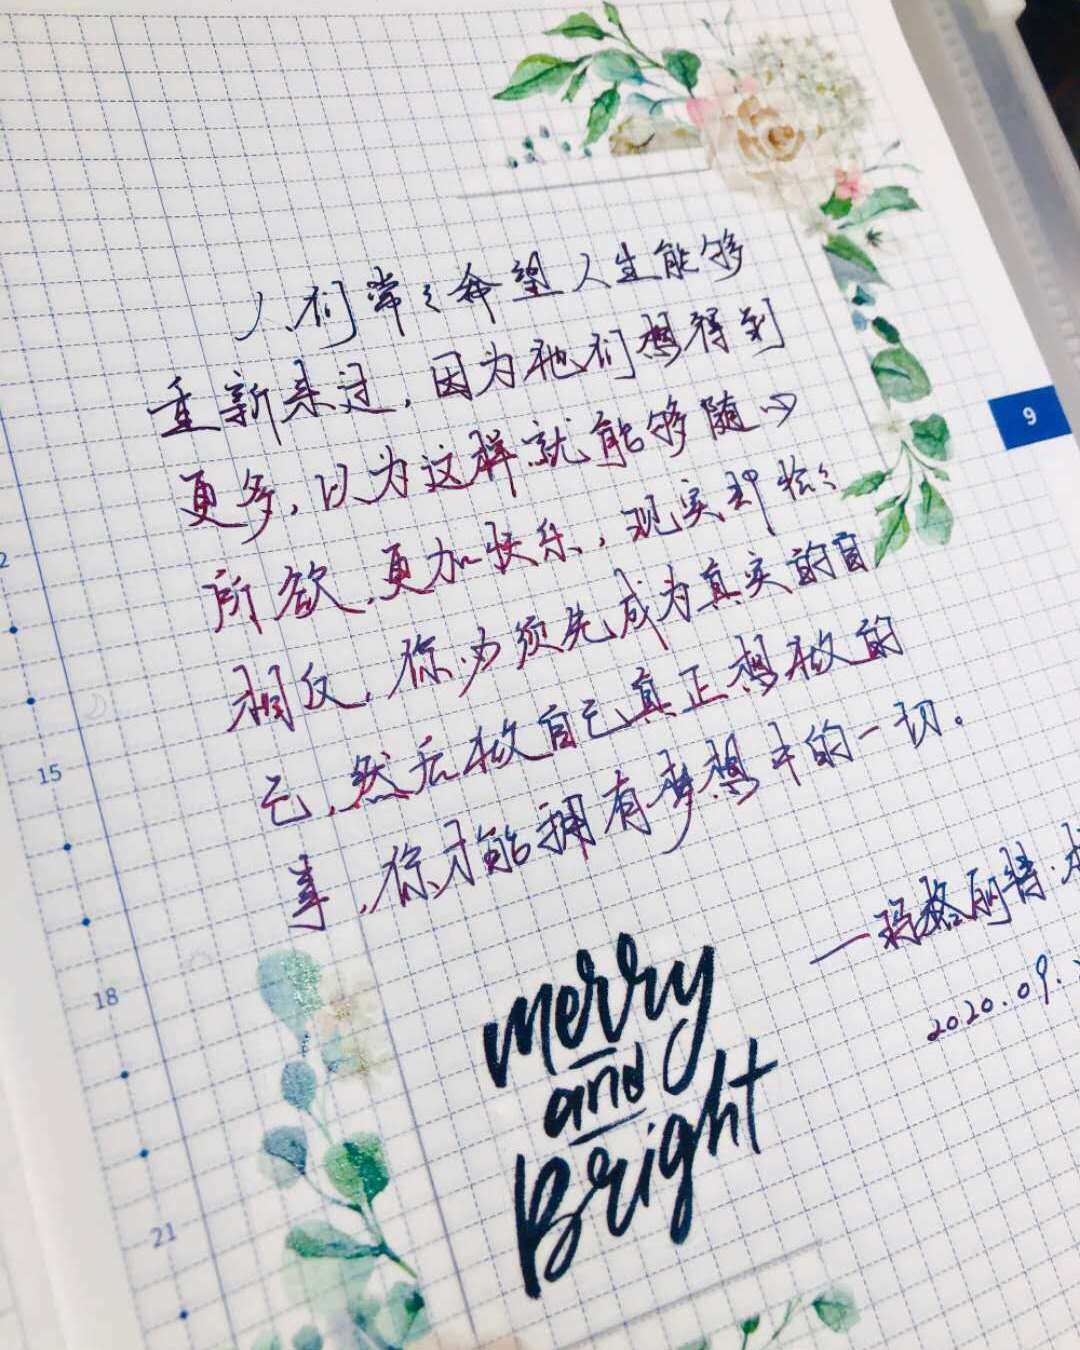 人们常常希望人生能够
重新来过，因为他们想得到
更多，以为这样就能够随心
所欲，更加快乐，现实却恰恰
相反，你必须先成为真实的自
己，然后做自己真正想做的
事，你才能拥有梦想中的一切。
—玛格丽特·
2020.09.
merry
and
Bright
9
15
18
21